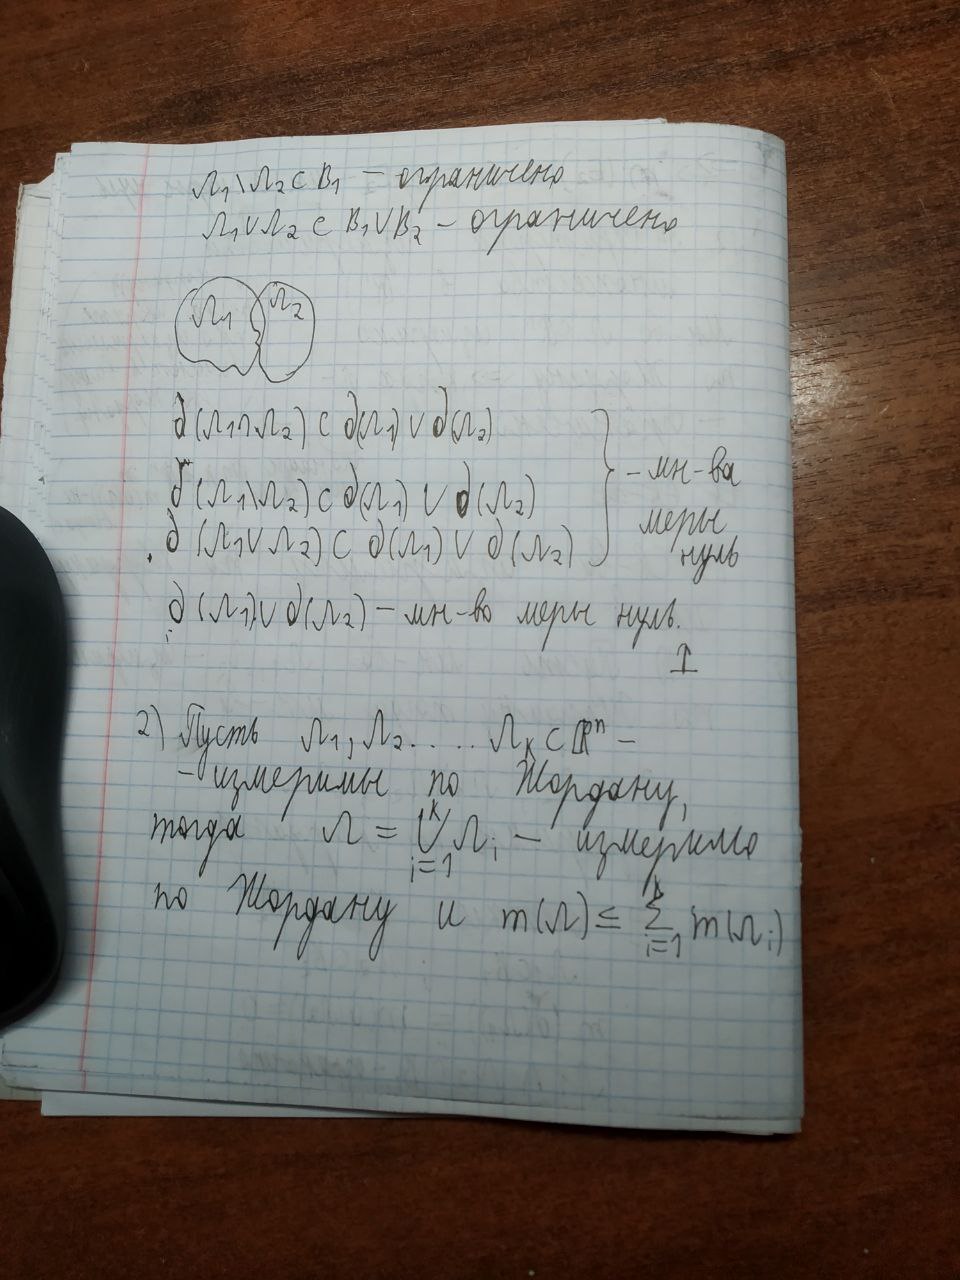 Ω₁\Ω₂ ⊂ B₁ – ограничено
Ω₁∪Ω₂ ⊂ B₁∪B₂ – ограничено
Ω₁ Ω₂
∂(Ω₁∩Ω₂) ⊂ ∂(Ω₁)∪∂(Ω₂)
∂(Ω₁\Ω₂) ⊂ ∂(Ω₁)∪∂(Ω₂)
∂(Ω₁∪Ω₂) ⊂ ∂(Ω₁)∪∂(Ω₂)
– мн-ва
меры
нуль
∂(Ω₁)∪∂(Ω₂) – мн-во меры нуль.
2) Пусть Ω₁, Ω₂ .... Ωₖ ⊂ ℝⁿ –
– измеримы по Жордану,
тогда Ω = ⋃ᵢ₌₁ᵏ Ωᵢ – измеримо
по Жордану и m(Ω) ≤ ∑ᵢ₌₁ᵏ m(Ωᵢ)